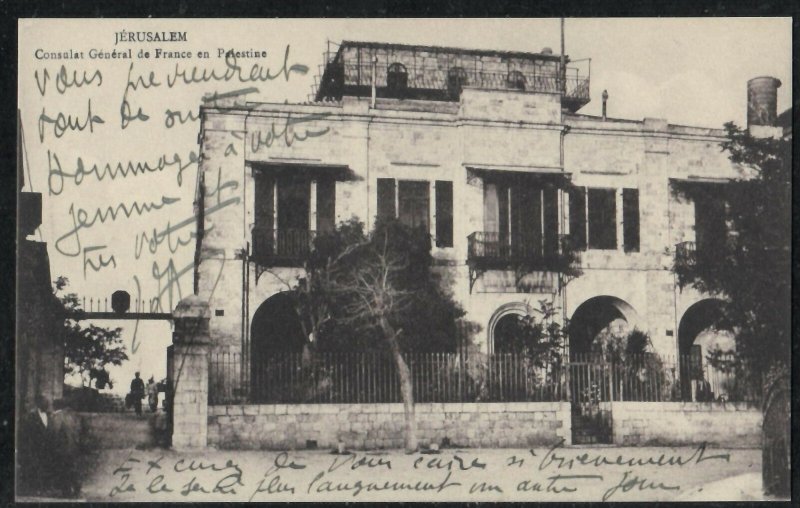 JÉRUSALEM
Consulat Général de France en Palestine
vous préviendront
tout de suite
hommages à votre
femme et
très votre
Excusez de vous écrire si brièvement
Je le serai plus longuement un autre jour